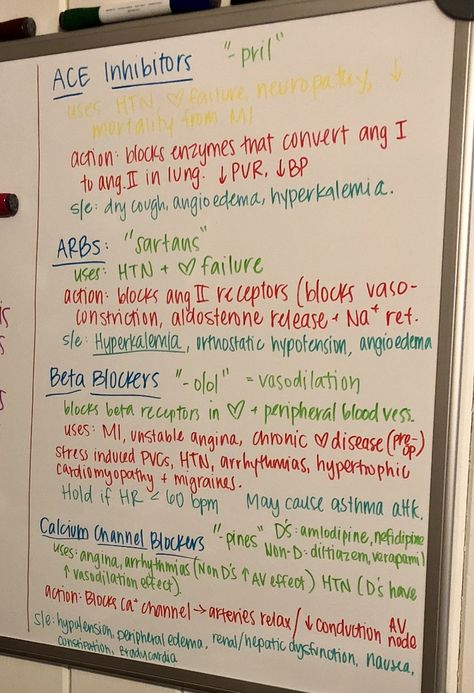 ACE Inhibitors "-pril"
uses HTN, ♡ failure, neuropathy, ↓
mortality from MI
action: blocks enzymes that convert ang I
to ang. II in lung. ↓PVR, ↓BP
s/e: dry cough, angioedema, hyperkalemia.
ARBs: "sartans"
uses: HTN + ♡ failure
action: blocks ang II receptors (blocks vaso-
constriction, aldosterone release + Na⁺ ret.
s/e: Hyperkalemia, orthostatic hypotension, angioedema
Beta Blockers "-olol" = vasodilation
blocks beta receptors in ♡ + peripheral blood vess.
uses: MI, unstable angina, chronic ♡ disease (pre-op)
stress induced PVCs, HTN, arrhythmias, hypertrophic
cardiomyopathy + migraines.
Hold if HR < 60 bpm May cause asthma attk.
Calcium Channel Blockers "-pines" D's: amlodipine, nefidipine
Non-D: diltiazem, verapamil
uses: angina, arrhythmias (Non D's ↑ AV effect) HTN (D's have
↑ vasodilation effect).
action: Blocks Ca²⁺ channel → arteries relax/↓ conduction AV
node
s/e: hypotension, peripheral edema, renal/hepatic dysfunction, nausea,
constipation, bradycardia